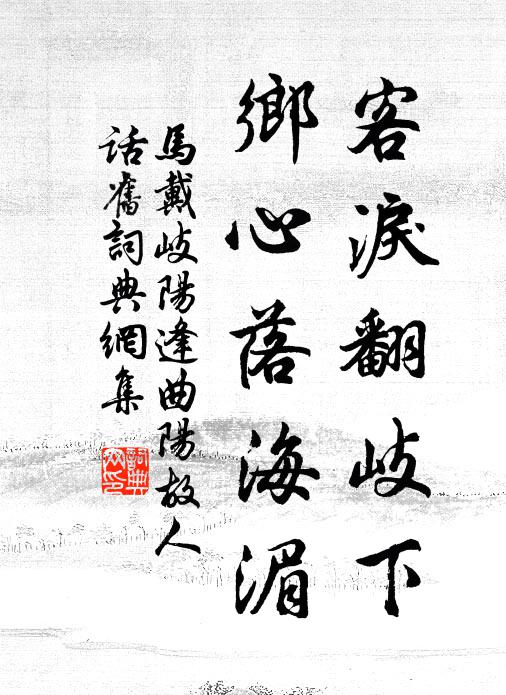 客淚翻岐下
鄉心落海湄
馬戴岐陽逢曲陽故人
話舊詞典網集
詞典網印